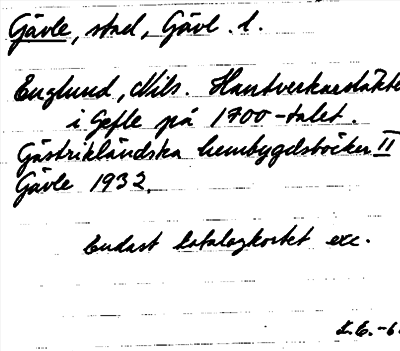 Gävle, stad, Gävl. l.
Englund, Nils. Hantverkarsläkte
i Gefle på 1700-talet.
Gästrikländska hembygdsböcker II
Gävle 1932.
Endast katalogkortet exc.
L.E.-6